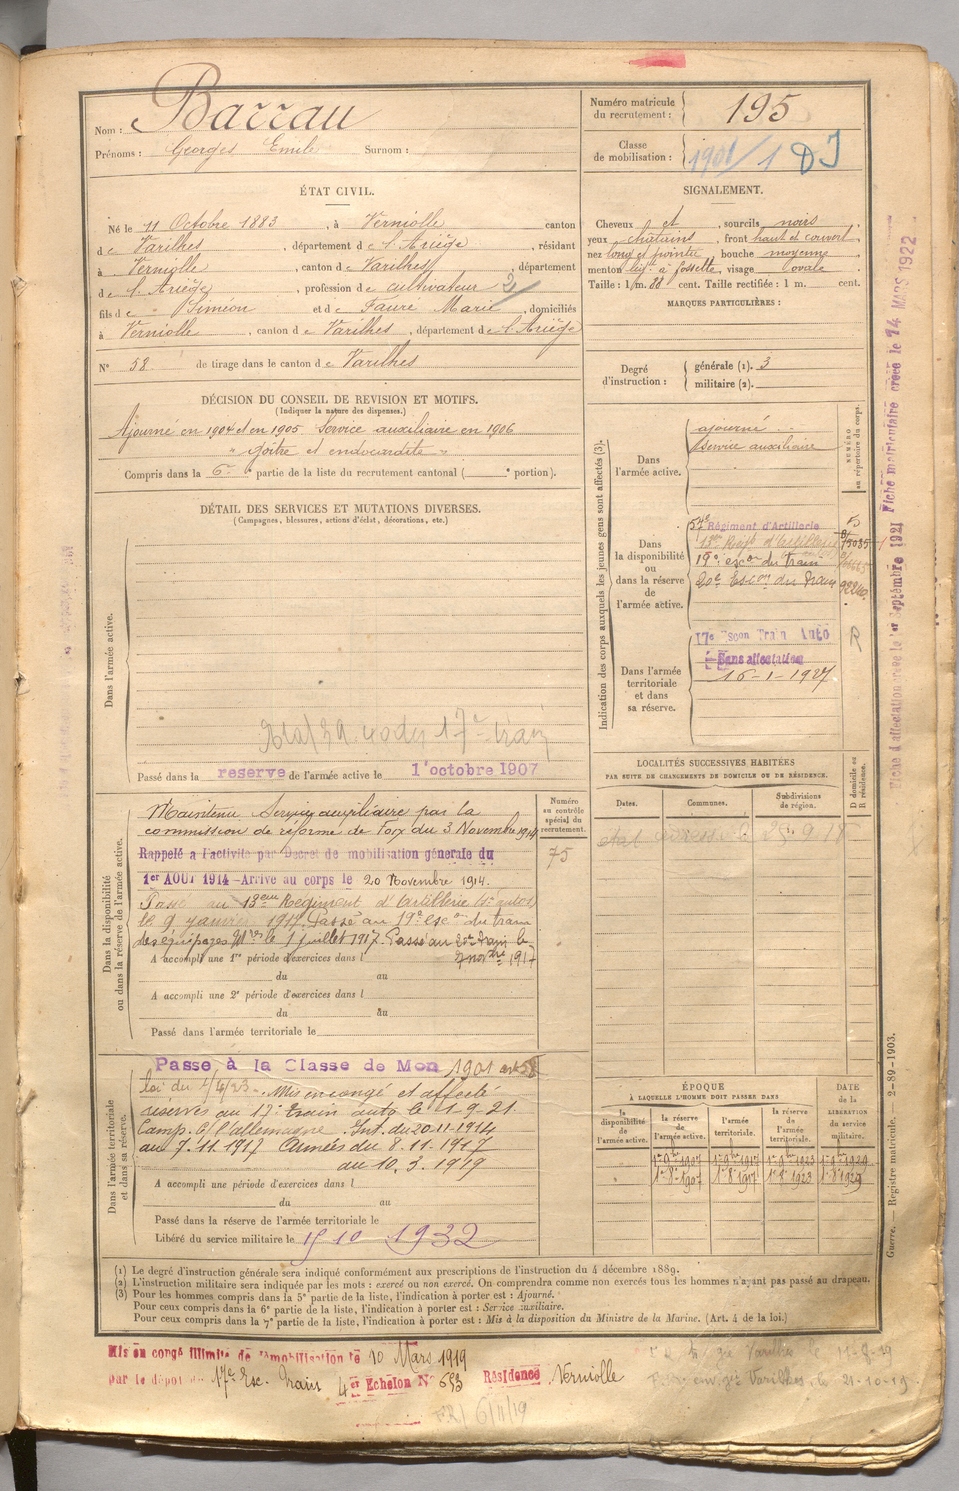 Nom : Barrau
Prénoms : Georges Emile Surnom :
Numéro matricule du recrutement : 195
Classe de mobilisation : 1901/1 DJ
ÉTAT CIVIL.
Né le 11 Octobre 1883, à Verniolle canton
de Varilhes, département de l'Ariège, résidant
à Verniolle, canton de Varilhes, département
de l'Ariège, profession de cultivateur 2
fils de Siméon et de Faure Marie, domiciliés
à Verniolle, canton de Varilhes, département de l'Ariège
N° 58 de tirage dans le canton de Varilhes
SIGNALEMENT.
Cheveux et, sourcils noirs
yeux châtains, front haut et couvert
nez long et pointu, bouche moyenne
menton à fossette, visage ovale
Taille : 1 m. cent. Taille rectifiée : 1 m. cent.
MARQUES PARTICULIÈRES :
Degré d'instruction :
générale (1). 3
militaire (2).
DÉCISION DU CONSEIL DE REVISION ET MOTIFS.
(Indiquer la nature des dispenses.)
Ajourné en 1904 et en 1905 Service auxiliaire en 1906
" goitre et endocardite "
Compris dans la 6e partie de la liste du recrutement cantonal ( e portion).
DÉTAIL DES SERVICES ET MUTATIONS DIVERSES.
(Campagnes, blessures, actions d'éclat, décorations, etc.)
Dans l'armée active.
17e train
Passé dans la reserve de l'armée active le 1 octobre 1907
Indication des corps auxquels les jeunes gens sont affectés (3).
NUMÉRO au répertoire du corps.
Dans l'armée active.
ajourné
service auxiliaire
Dans la disponibilité ou dans la réserve de l'armée active.
57e Régiment d'Artillerie
13e Reg d'Artillerie
19e escon du Train
20e Escon du Train
Dans l'armée territoriale et dans sa réserve.
17e Escon Train Auto
Sans affectation
16-1-1927
R
Fiche d'affectation créée le 1er Septembre 1921 Fiche matriculaire créée le 14 MARS 1922
LOCALITÉS SUCCESSIVES HABITÉES
PAR SUITE DE CHANGEMENTS DE DOMICILE OU DE RÉSIDENCE.
Dates. Communes. Subdivisions de région. D domicile ou R résidence.
Dans la disponibilité ou dans la réserve de l'armée active.
Numéro au contrôle spécial du recrutement.
75
Maintenu Service auxiliaire par la
commission de réforme de Foix du 3 Novembre 1914
Rappelé à l'activité par Décret de mobilisation générale du
1er AOUT 1914 - Arrivé au corps le 20 Novembre 1914.
Passé au 13eme Régiment d'Artillerie
le 9 janvier 1917. Passé au 19e escon du train
des équipages Mres le 1 juillet 1917. Passé au 20e Train le
7 novbre 1917
A accompli une 1re période d'exercices dans l
du au
A accompli une 2e période d'exercices dans l
du au
Passé dans l'armée territoriale le
Dans l'armée territoriale et dans sa réserve.
Passé à la Classe de Mon 1901 art 58
loi du 1/4/23. Mis en congé et affecté
réserves au 17e train auto le 1.9.21
Camp. c/ l'allemagne. Int. du 20-11-1914
au 7.11.1917 Armées du 8.11.1917
au 10.3.1919
A accompli une période d'exercices dans l
du au
Passé dans la réserve de l'armée territoriale le
Libéré du service militaire le 15 10 1932
ÉPOQUE
À LAQUELLE L'HOMME DOIT PASSER DANS
la disponibilité de l'armée active. la réserve de l'armée active. l'armée territoriale. la réserve de l'armée territoriale. DATE de la LIBÉRATION du service militaire.
1er 8bre 1907 1er 8bre 1917 1er 8bre 1923 1er 8bre 1929
1er 8e 1907 1er 8e 1917 1er 8e 1923 1er 8e 1929
Guerre. — Registre matricule. — 2-89-1903.
(1) Le degré d'instruction générale sera indiqué conformément aux prescriptions de l'instruction du 4 décembre 1889.
(2) L'instruction militaire sera indiquée par les mots : exercé ou non exercé. On comprendra comme non exercés tous les hommes n'ayant pas passé au drapeau.
(3) Pour les hommes compris dans la 5e partie de la liste, l'indication à porter est : Ajourné.
Pour ceux compris dans la 6e partie de la liste, l'indication à porter est : Service auxiliaire.
Pour ceux compris dans la 7e partie de la liste, l'indication à porter est : Mis à la disposition du Ministre de la Marine. (Art. 4 de la loi.)
Mis en congé illimité de démobilisation le 10 Mars 1919
par le dépôt du 17e Esc. Train 4er Echelon N° 653 Résidence Verniolle
Varilhes le 11-8-19
Varilhes, le 21-10-19
6/11/19